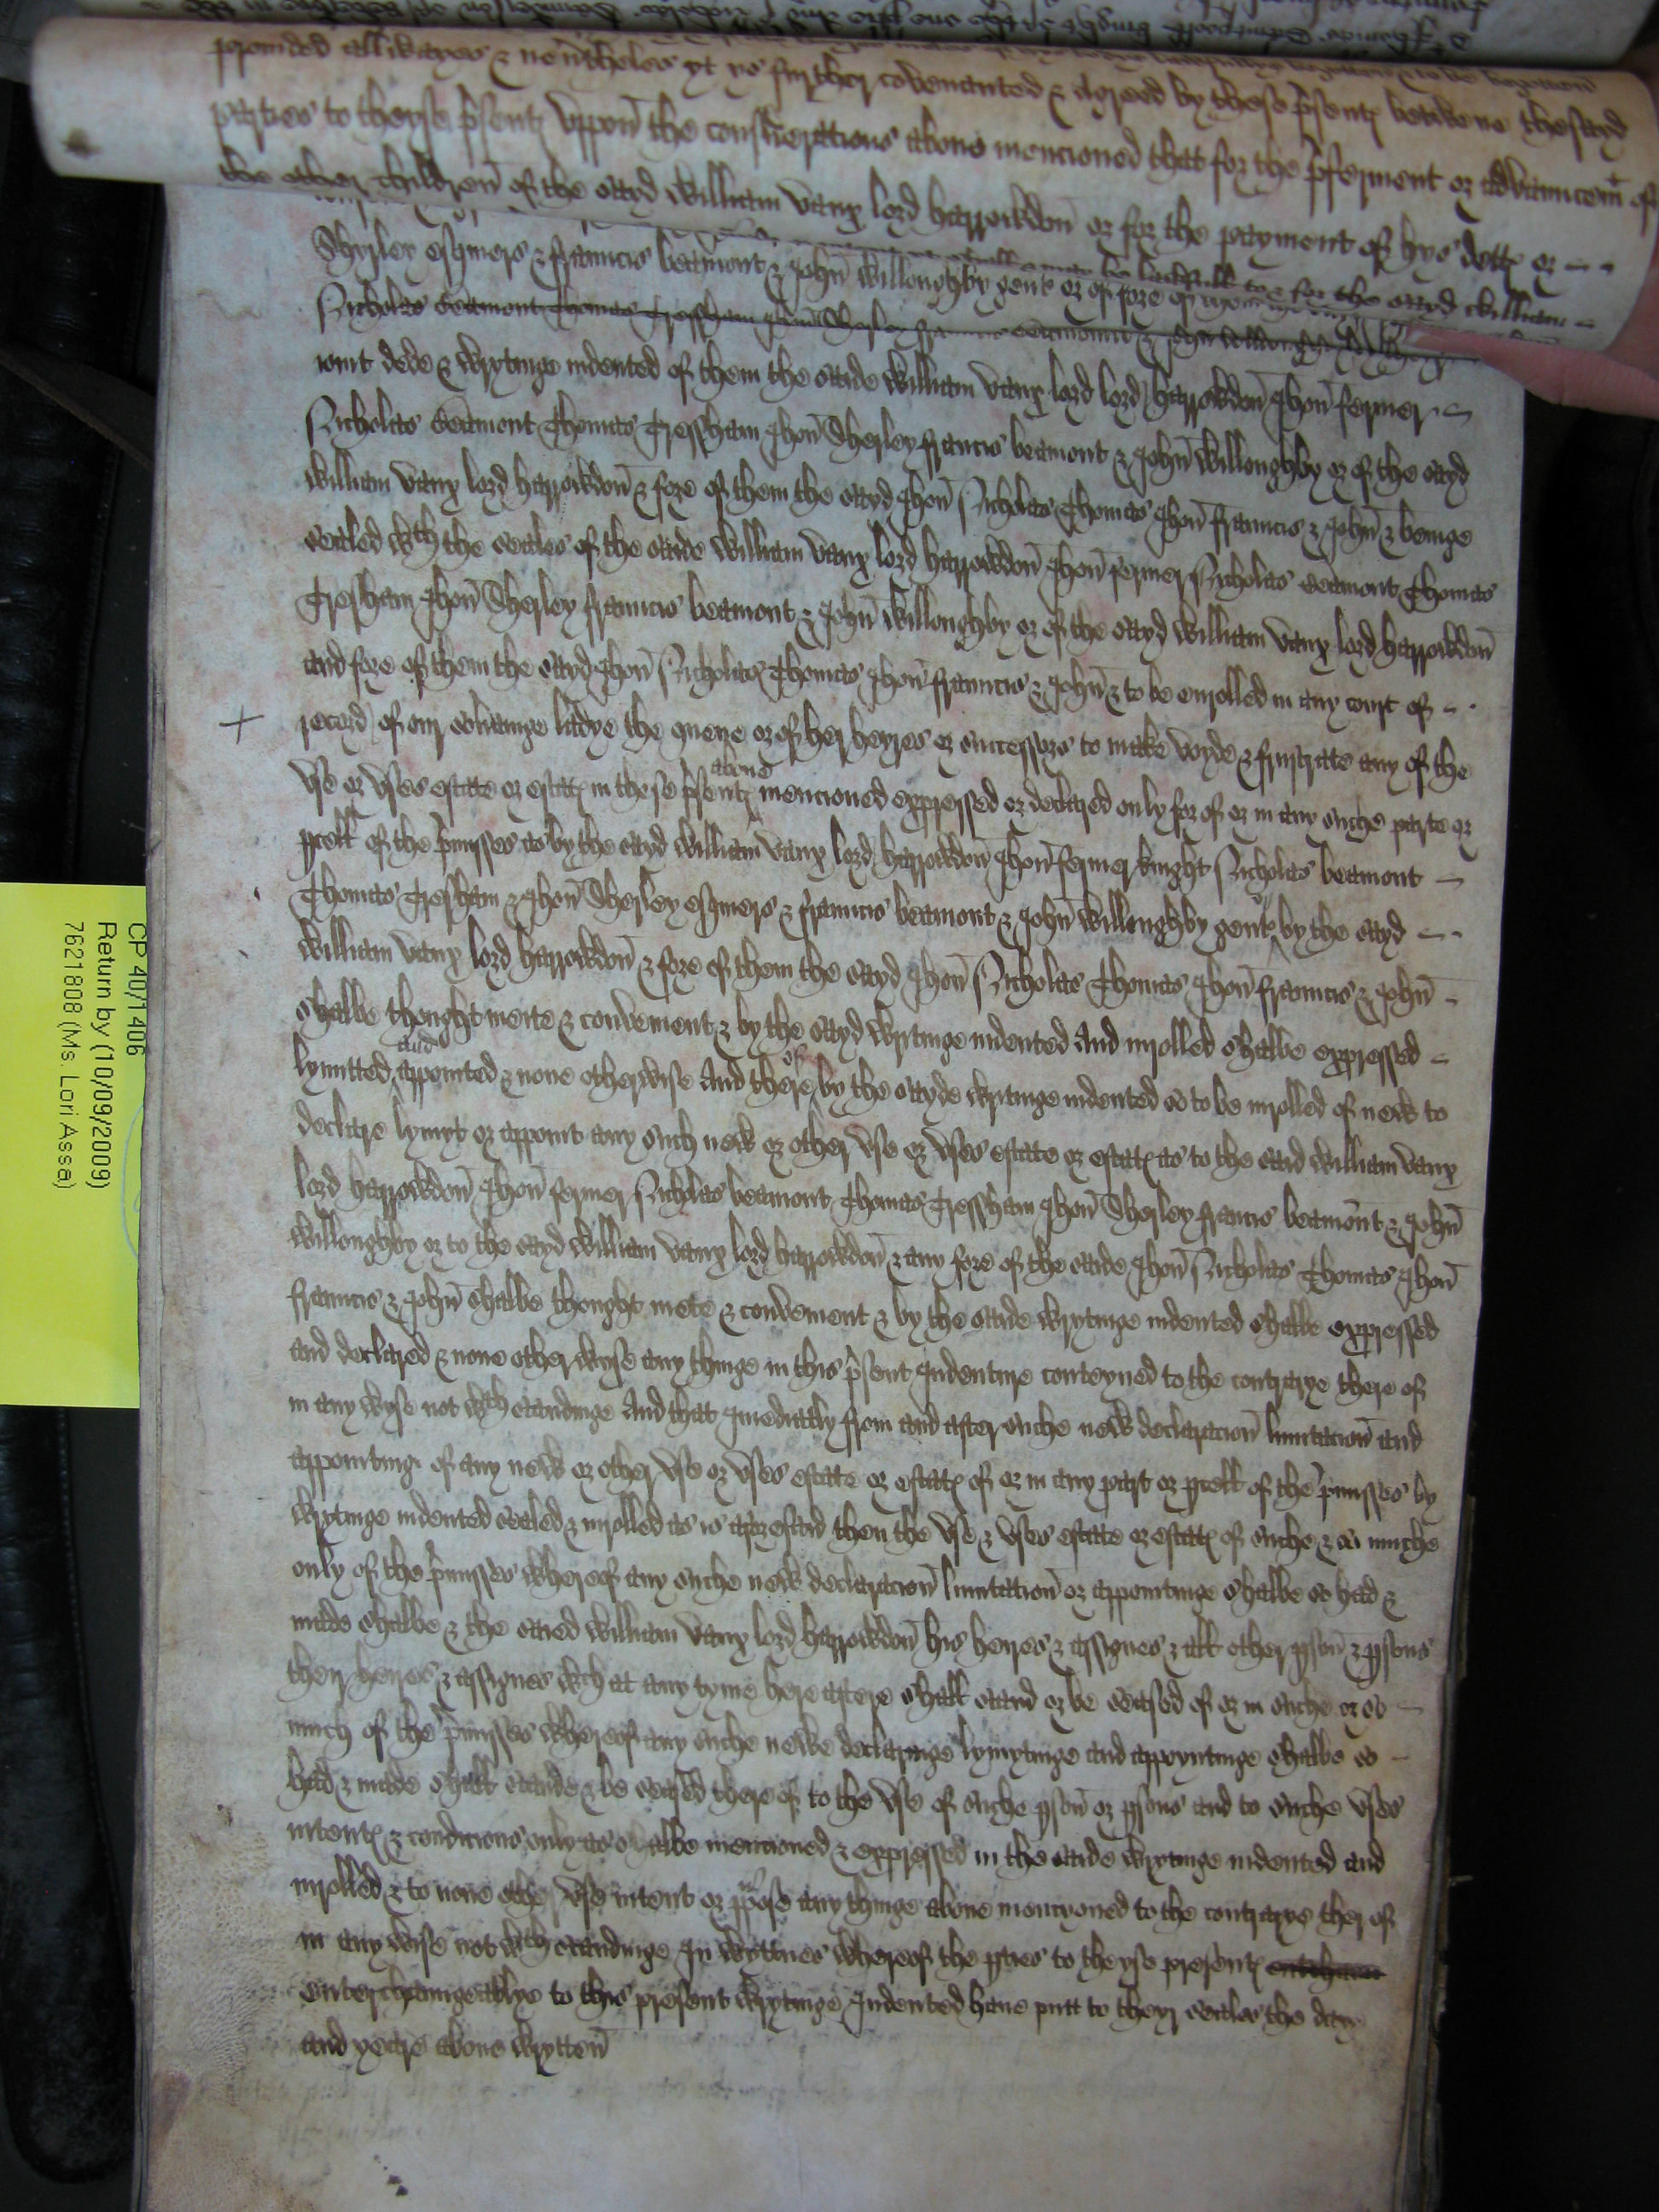 provided allwayes & nev'theles yt ys further covenanted & agreed by these p'sent betwene the sayd
parties to theyse p'sent uppon the consideracions above mencioned that for the p'ferment or advauncemt of
the other children of the sayd william vaux lord harrowdon or for the payment of hys dett or
shalbe lawfull to & for the sayd william
Sherley esquiers & frauncis beamont & John willoughby gent or of fore of them
Nicholas beamont Thomas Tressham Jhon Sherley frauncis beamont & John willoughby
wrut dede & wrytinge indented of them the saide william vaux lord lord harrowdon Jhon fermer
Nicholas beamont Thomas Tressham Jhon Sherley francis beamont & John willoughby or of the sayd
william vaux lord harrowdon & fore of them the sayd Jhon Nicholas Thomas Jhon frauncis & John & beinge
sealed wth the seales of the saide william vaux lord harrowdon Jhon fermer Nicholas beamont Thomas
Tresham Jhon Sherley frauncis beamont & John willoughby or of the sayd william vaux lord harrowdon
and fore of them the sayd Jhon Nicholas Thomas Jhon frauncis & John & to be enrolled in any court of
record of our sov'ainge ladye the quene or of her heyres or successors to make voyde & frustrate any of the
use or uses estate or estat in these p'sent above mencioned expressed or declared only for of or in any suche parte or
pcell of the p'misses as by the sayd william vaux lord harrowdon Jhon fermer knight Nicholas beamont
Thomas Tresham & Jhon Sherley esquiers & frauncis beamont & John willoughby gent or by the sayd
william vaux lord harrowdon & fore of them the sayd Jhon Nicholas Thomas Jhon frauncis & John
shalbe thought meite & convenient & by the sayd wrytinge indented And inrolled shalbe expressed
lymitted and appointed & none otherwise And there of by the sayde wrytinge indented so to be inrolled of new to
declare lymyt or appoint any such new or other use or uses estate or estat as to the said william vaux
lord harrowdon Jhon fermer Nicholas beamont Thomas Tressham Jhon Sherley francis beamont & John
willoughby or to the sayd william vaux lord harrowdon & any fore of the saide Jhon Nicholas Thomas Jhon
frauncis & John shalbe thought mete & convenient & by the saide wrytinge indented shalbe expressed
and declared & none other wyse any thinge in this p'sent Indenture conteyned to the contrarye there of
in any wyse not wth standinge And that Imediatly from and after suche new declaracion limitacion and
appointinge of any new or other use or uses estate or estat of or in any part or pcell of the p'misses by
wrytinge indented sealed & inrolled as is aforesaid then the use & uses estate or estat of suche & so muche
only of the p'misses whereof any suche new declaracion limitation or appointinge shalbe so had &
made shalbe & the saied william vaux lord harrowdon his heires & assignes & all other pson & psons
their heires & assignes wch at any tyme here aftere shall stand or be seased of or in suche or so
much of the p'misses whereof any suche newe declaringe lymytinge and appoyntinge shalbe so
had & made shall stande & be seased there of to the use of suche pson or psons and to suche uses
intent & condicions only as shalbe mencioned & expressed in the saide wrytinge indented and
inrolled & to none other use intent or ppose any thinge above mencyoned to the contrarye ther of
in any wise not wth standinge In wyttnes whereof the pties to theyse present
enterchaungeablye to this present wrytinge Indented have putt to theyr seales the day
and yeare above wrytten
CP 40/1406
Return by (10/09/2009)
7621808 (Ms. Lori Assa)